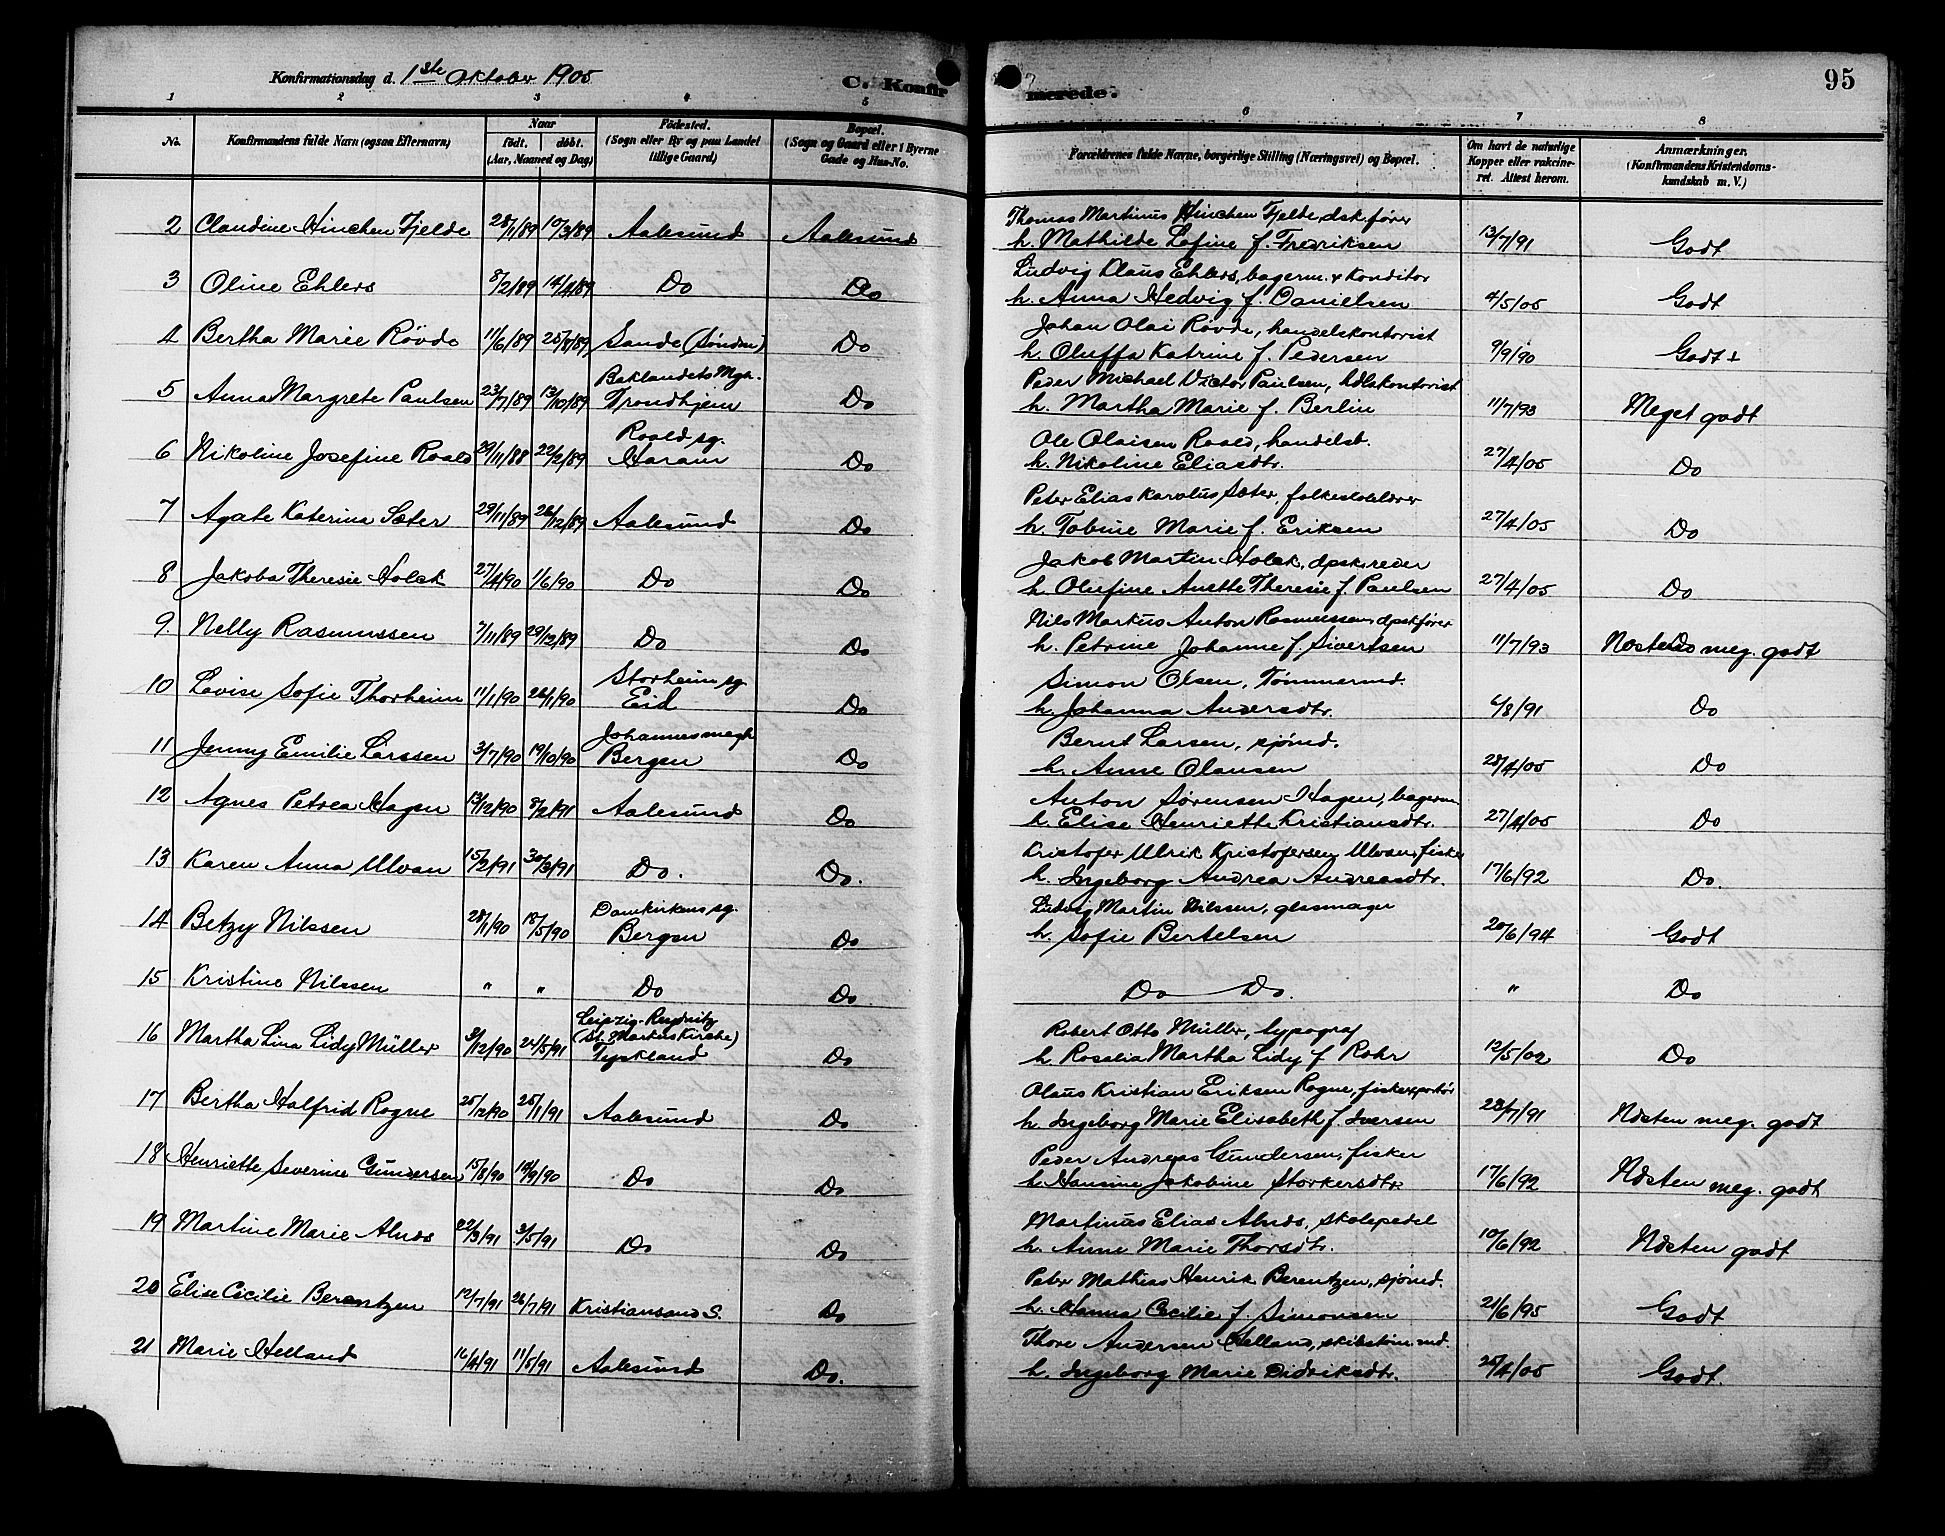 Konfirmationsdag d. 1ste Oktober 1905
C. Konfirmerede.
95
1 2 3 4 5 6 7 8
No.
Konfirmandens fulde Navn (ogsaa Efternavn)
Naar
født. døbt.
(Aar, Maaned og Dag)
Fødested.
(Sogn eller By og paa Landet tillige Gaard)
Bopæl.
(Sogn og Gaard eller i Byerne Gade og Hus-No.
Forældrenes fulde Navne, borgerlige Stilling (Næringsvei) og Bopæl.
Om havt de naturlige Kopper eller vakcineret. Attest herom.
Anmærkninger.
(Konfirmandens Kristendomskundskab m. V.)
2 Claudine Hinchen Fjelde 28/1/89 10/3/89 Aalesund Aalesund Thomas Martinus Hinchen Fjelde, dsk.fører
h. Mathilde Lofine f. Fredriksen 13/7/91 Godt
3 Oline Ehlers 8/2/89 14/4/89 Do Do Ludvig Claus Ehlers, bagerm. & Konditor
h. Anna Hedvig f. Danielsen 4/5/05 Godt
4 Bertha Marie Røvde 11/6/89 25/8/89 Sande (Søndm) Do Johan Olai Røvde, handelskontorist
h. Oluffa Katrine f. Pedersen 9/9/90 Godt +
5 Anna Margrete Paulsen 23/7/89 13/10/89 Baklandets Mgh. Trondhjem Do Peder Michael Victor Paulsen, hdlskontorist
h. Martha Marie f. Berlin 11/7/93 Meget godt
6 Nikoline Josefine Roald 29/11/88 22/2/89 Roald sg. Haram Do Ole Olaisen Roald, handelsb.
h. Nikoline Eliasdtr. 27/4/05 Do
7 Agate Katerina Sæter 29/11/89 26/12/89 Aalesund Do Peter Elias Karolus Sæter, folkeskolelærer
h. Tobine Marie f. Eriksen 27/4/05 Do
8 Jakoba Theresie Holck 27/4/90 1/6/90 Do Do Jakob Martin Holck, dpsk.reder
h. Olufine Anette Theresie f. Paulsen 27/4/05 Do
9. Nelly Rasmussen 7/11/89 29/12/89 Do Do Nils Markus Anton Rasmussen, dpskfører
h. Petrine Johanne f. Sivertsen 11/7/93 Næsten meg. godt
10 Lovise Sofie Thorheim 11/1/90 26/1/90 Storheim sg. Eid Do Simon Olsen, Tømmermd.
h. Johanna Andersdtr. 6/8/91 Do
11 Jenny Emilie Larssen 3/7/90 19/10/90 Johannes megh Bergen Do Bernt Larsen, sjømd.
h. Anne Olausen 28/4/05 Do
12 Agnes Petrea Hagen 13/12/90 8/2/91 Aalesund Do Anton Sørensen Hagen, bagerm
h. Elise Henriette Kristiansdtr. 27/4/05 Do
13 Karen Anna Ulvan 15/2/91 30/3/91 Do. Do. Kristofer Ulrik Kristofersen Ulvan, fisker
h. Ingeborg Andrea Andreasdtr. 17/6/92 Do.
14 Betzy Nilssen 28/1/90 18/5/90 Domkirkens sg. Bergen Do Ludvig Martin Nilssen, glasmager
h. Sofie Bertelsen 20/6/94 Godt
15 Kristine Nilssen " " Do Do Do Do. " Do
16 Martha Lina Lidy Müller 3/12/90 24/5/91 Leipzig-Reudnitz (St. Markus Kirche) Tyskland Do Robert Otto Müller, typograf
h. Rosalia Martha Lidy f. Rohr 12/5/02 Do
17 Bertha Halfrid Rogne 25/12/90 25/1/91 Aalesund Do Olaus Kristian Eriksen Rogne, fiskexportør
h. Ingeborg Marie Elisabeth f. Iversen 28/7/91 Næsten meg. godt
18 Henriette Severine Gundersen 15/8/90 14/9/90 Do Do Peder Andreas Gundersen, fisker
h. Hansine Jakobine Storkersdtr. 17/6/92 Næsten meg. godt
19 Martine Marie Alnæs 22/3/91 3/5/91 Do Do Martinus Elias Alnæs, skolepedel
h. Anne Marie Thorsdtr. 10/6/92 Næsten godt
20 Elise Cecilie Berentzen 12/7/91 26/7/91 Kristiansand S. Do Peter Mathias Henrik Berentzen, sjømd.
h. Hanna Cecilie f. Simonsen 21/6/95 Godt
21 Marie Helland 16/4/91 11/5/91 Aalesund Do. Thore Andersen Helland, skibstøm.md.
h. Ingeborg Marie Didriksdtr. 25/4/05 Godt.